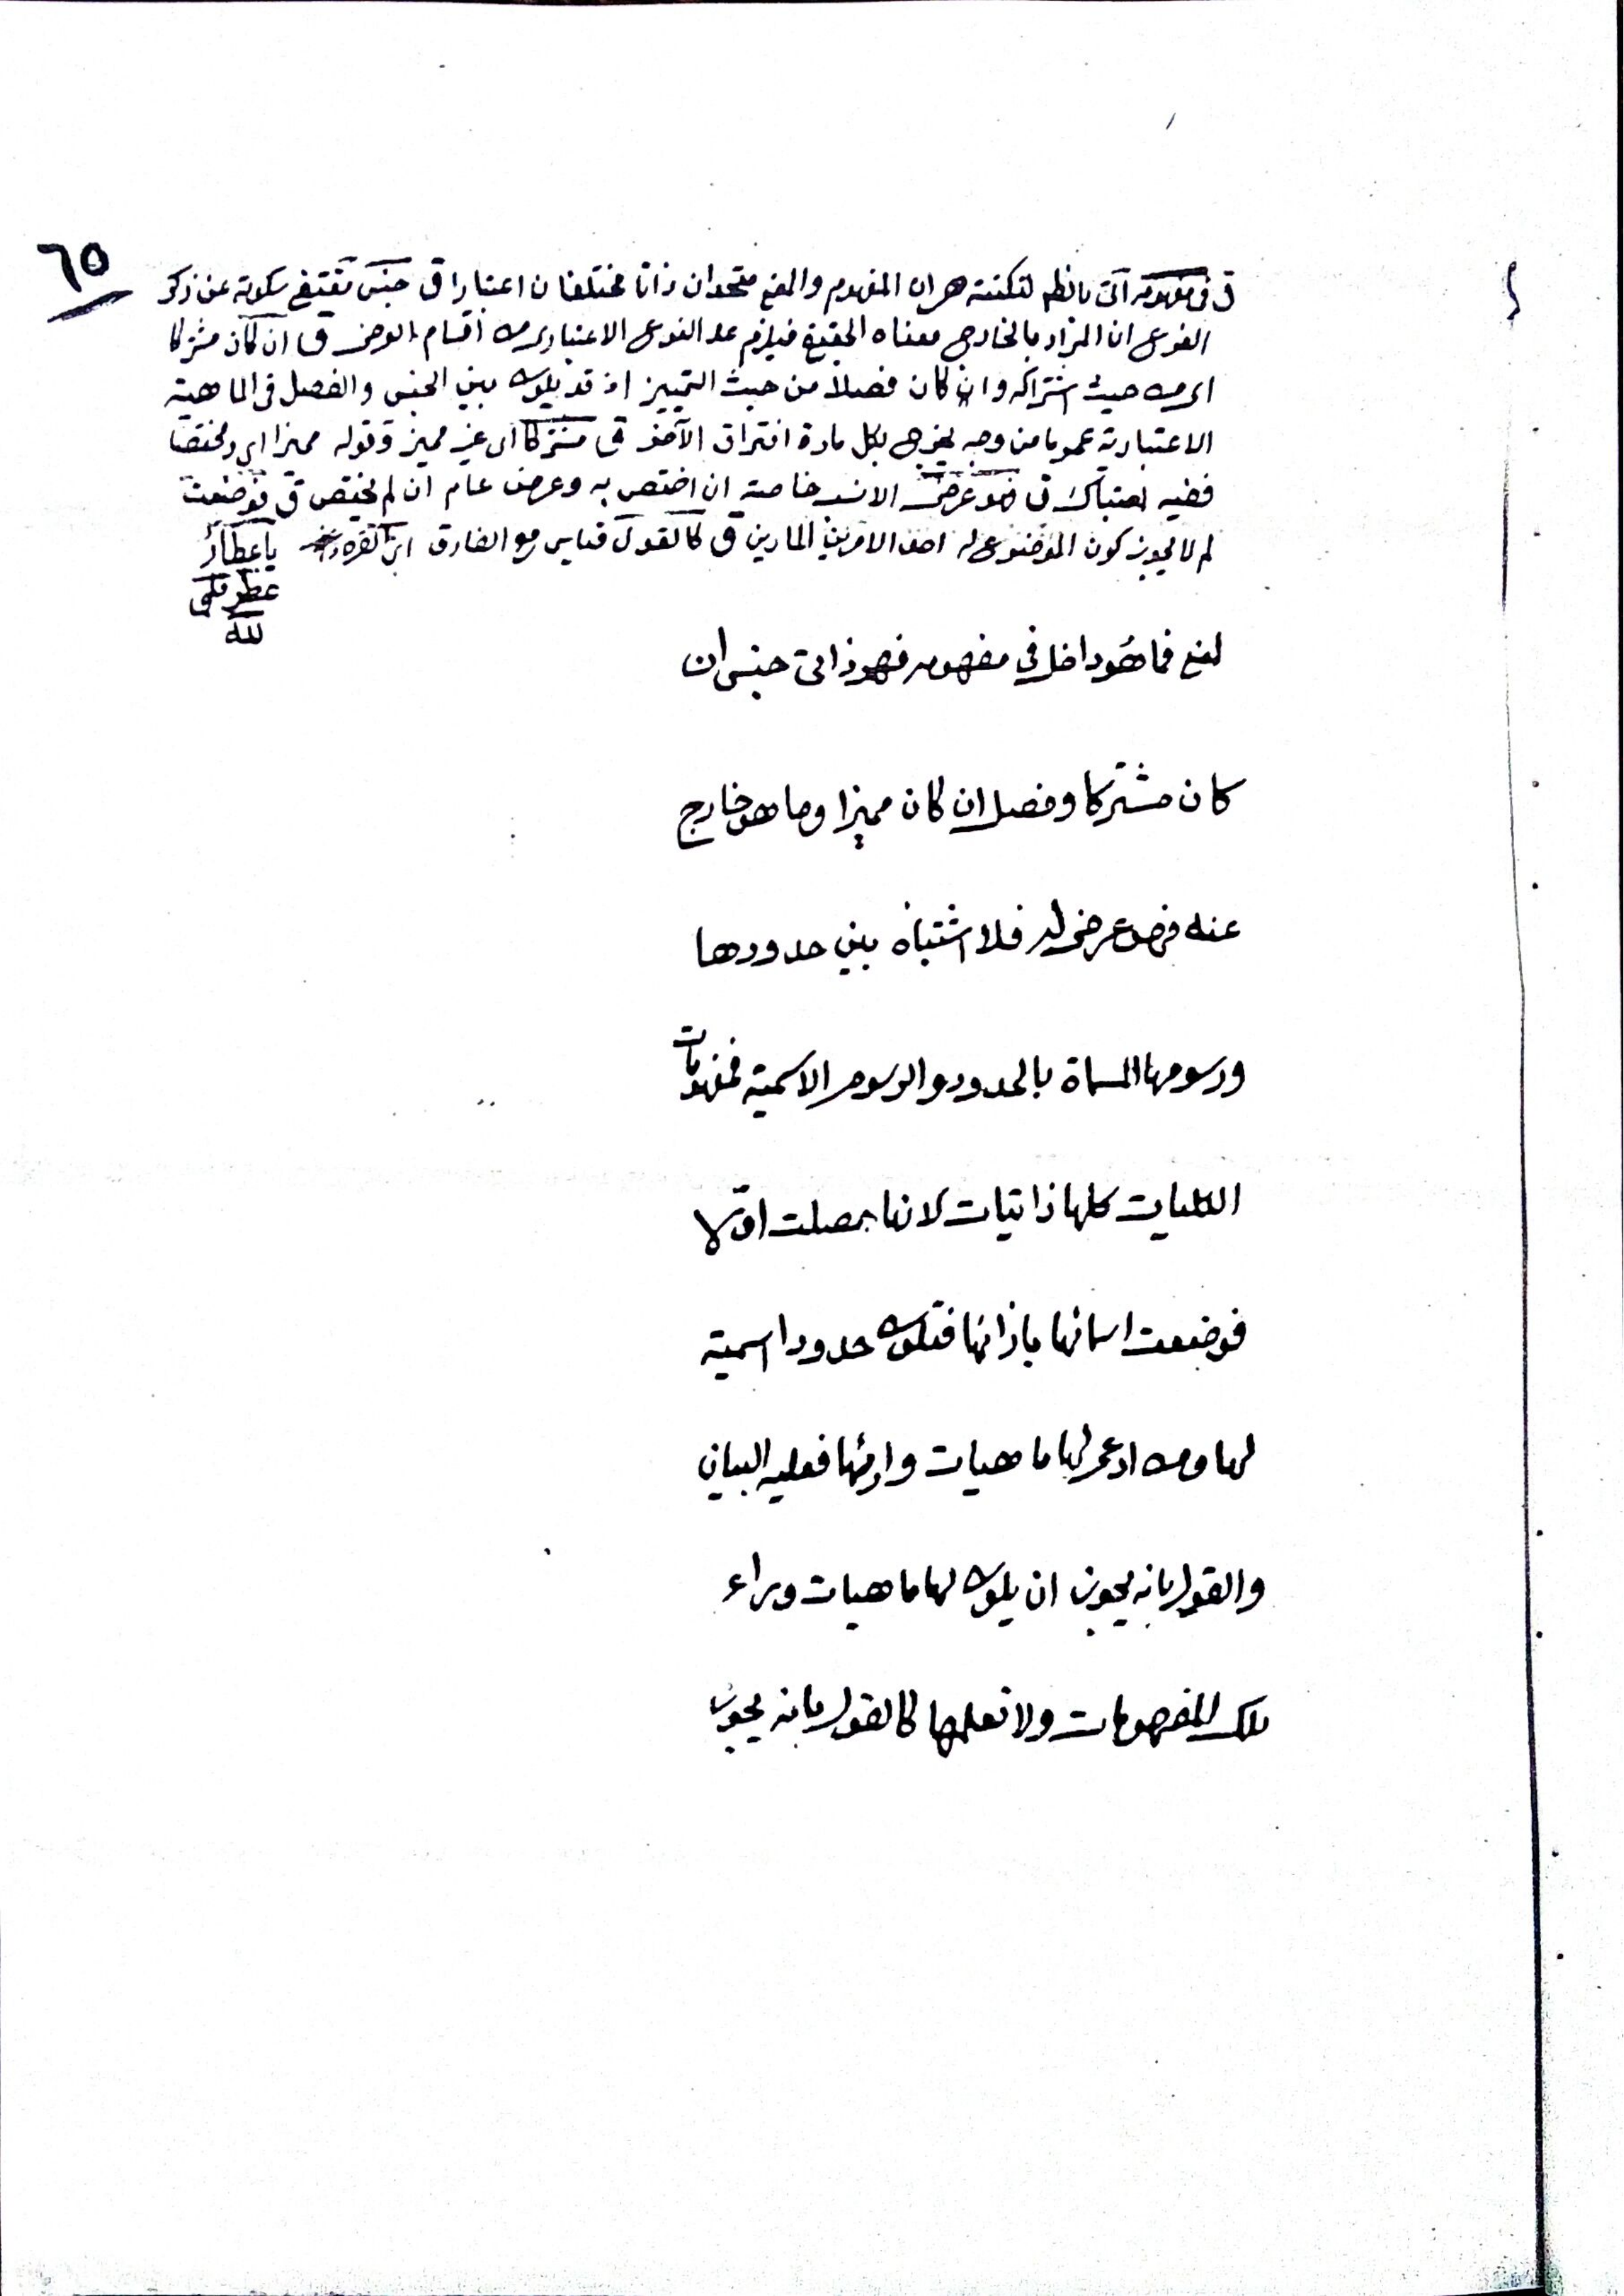 ٦٥
ق في مفهومه اتى بالظم لنكتته هى ان المفهوم والمعنى متحدان ذاتا مختلفان اعتبارا ق جنس مقتضى سكوته عن ذكر
النوع ان المراد بالخارج معناه الحقيقى فيلزم عد النوع الاعتبارى من اقسام العرض ق ان كان مشتركا
اى من حيث اشتراكه وان كان فصلا من حيث التمييز اذ قد يكون بين الجنس والفصل فى الماهية
الاعتبارية عموما من وجه يخرج بكل مادة افتراق الآخر ق مشتركا اى غير مميز وقوله مميزا اى ومختصا
ففيه احتباك ق فهو عرضى الانسب خاصته ان اختص به وعرض عام ان لم يختص ق فوضعت
لم لا يجوز كون الموضوع له احد الامرين المارين ق كالقول قياس مع الفارق ابن القره داغى
يا عطار
عطر قلمى
لله
لمنع فما هو داخل في مفهومه فهو ذاتى جنس ان
كان مشتركا وفصل ان كان مميزا وما هو خارج
عنه فهو عرضى له فلا اشتباه بين حدودها
ورسومها المسماة بالحدود والرسوم الاسمية فمفهومات
الكليات كلها ذاتيات لانها حصلت اولا
فوضعت اسمائها بازائها فتكون حدودا اسمية
لها ومن ادعى لها ماهيات وارئها فعليه البيان
والقول بانه يجوز ان يكون لها ماهيات وراء
تلك المفهومات ولا نعلمها كالقول بانه يجوز